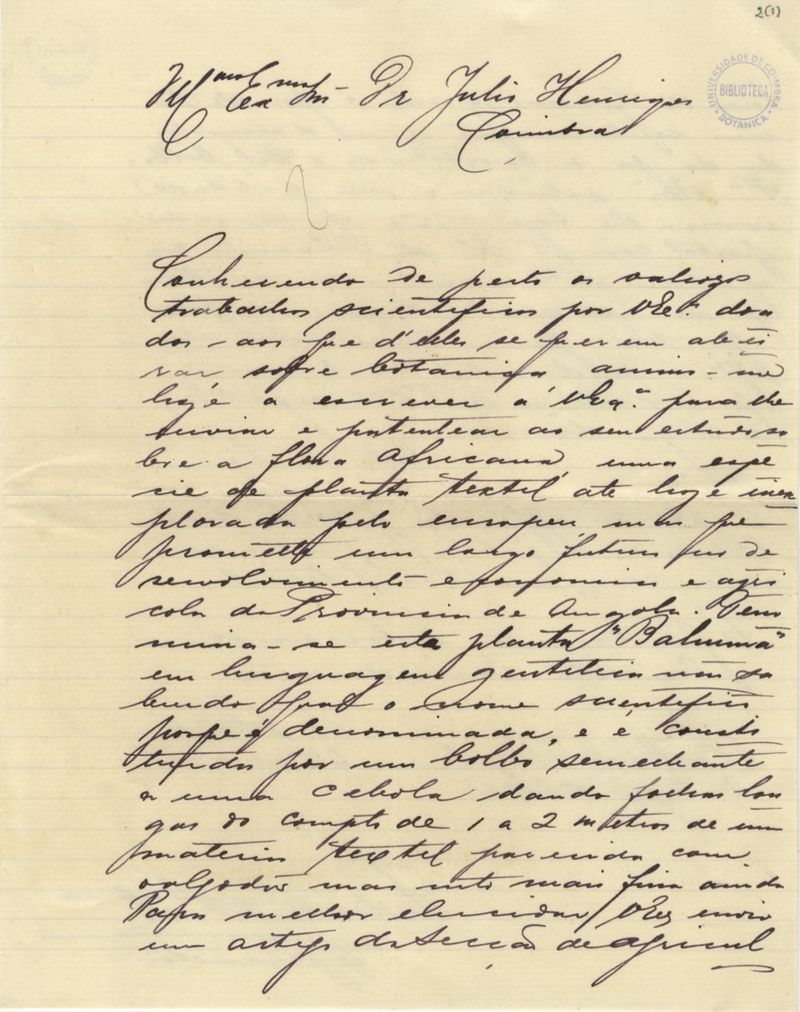 2(1)
UNIVERSIDADE DE COIMBRA
BIBLIOTECA
BOTANICA
Illmo Exmo Snr Dr Julio Henriques
Coimbra
Conhecendo de perto os valiozos
trabalhos scientificos por VExa. doa
dos - aos que d'elles se querem
sobre botanica animo-me
hoje a escrever a VExa. para lhe
enviar e patentear ao seu estudo so
bre a flora Africana, uma espe
cie de planta textil até hoje inex
plorada pelo europeu, mas que
promette um largo futuro no de
senvolvimento economico e agri
cola da Provincia de Angola. Deno
mina-se esta planta "Bahumà"
em linguagem gentilica não sa
bendo qual o nome scientifico
porque é denominada, e é consti
tuida por um bolbo semelhante
a uma cebola dando folhas lon
gas do compto de 1 a 2 metros de um
materia textil parecida com
algodão mas mto mais fina ainda
Para melhor elucidar VExa envio
um artigo da Secção de agricul